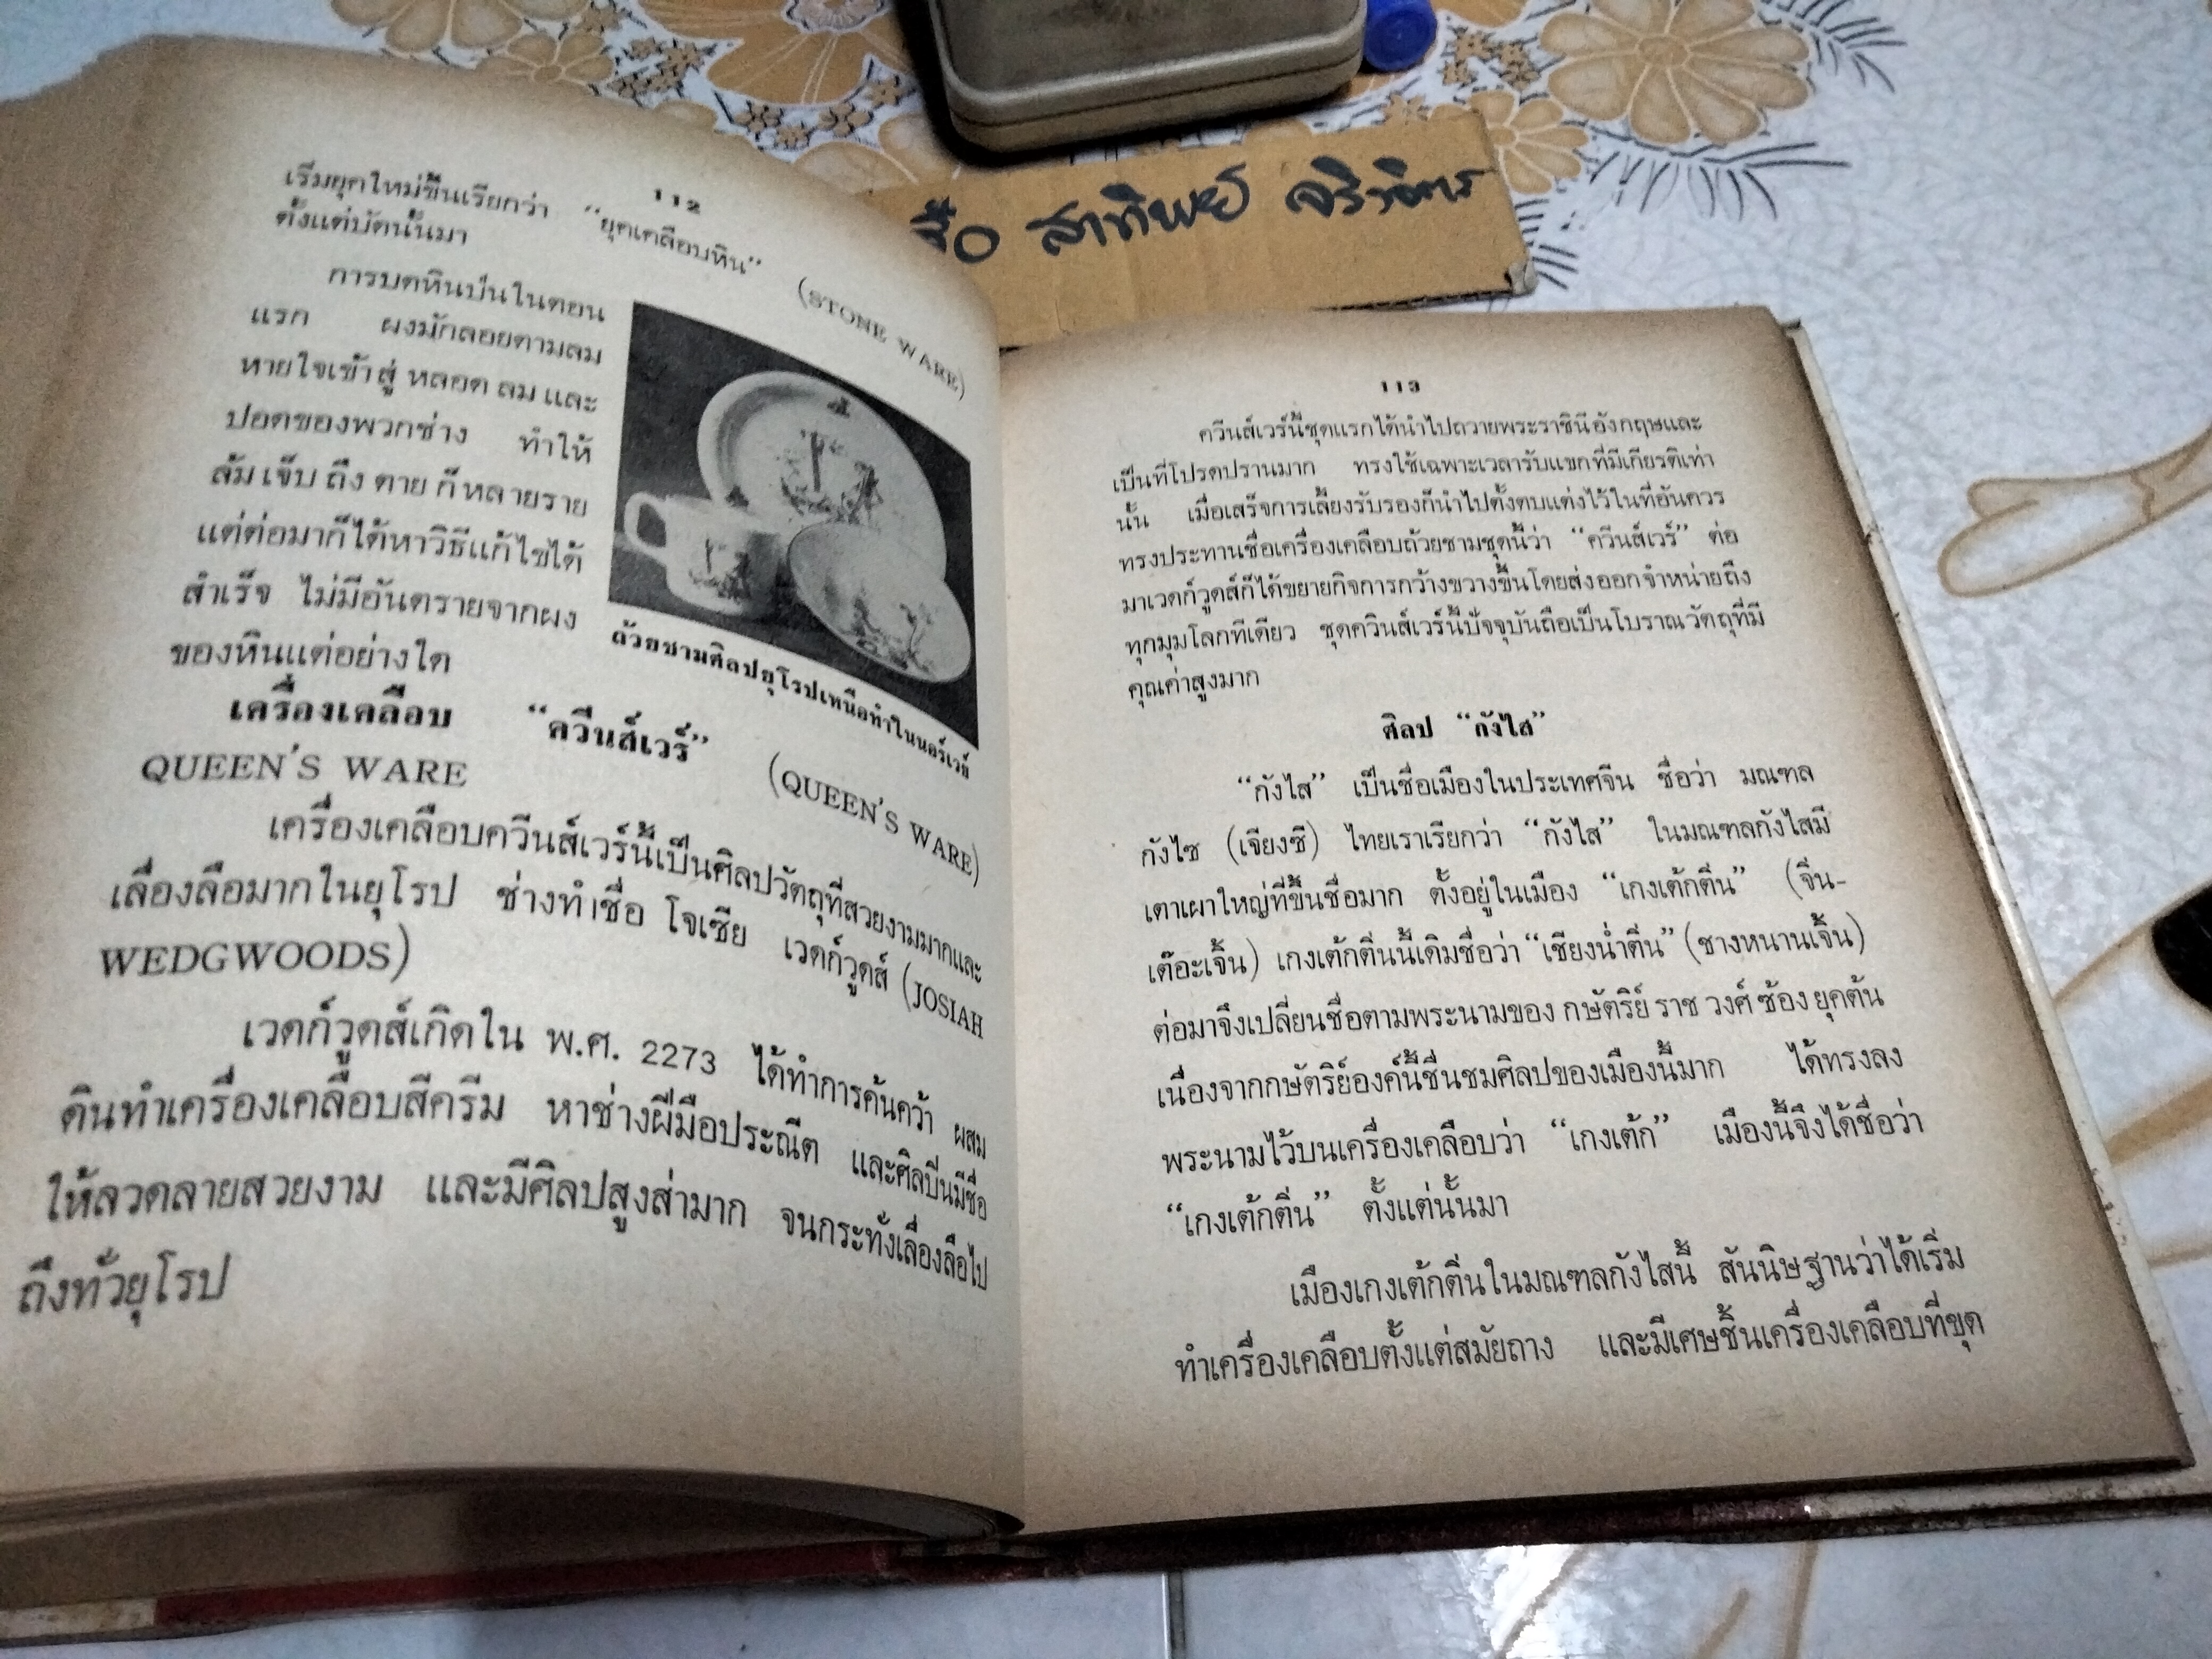 ชื่อ สาทิพย์ จริงจิตร
112
เริ่มยุคใหม่ขึ้นเรียกว่า “ยุคเคลือบหิน” (STONE WARE)
ตั้งแต่บัดนั้นมา
การบดหินป่นในตอน
แรก ผงมักลอยตามลม
หายใจเข้าสู่ หลอด ลม และ
ปอดของพวกช่าง ทำให้
ล้ม เจ็บ ถึง ตาย ก็ หลายราย
แต่ต่อมาก็ได้หาวิธีแก้ไขได้
สำเร็จ ไม่มีอันตรายจากผง
ของหินแต่อย่างใด
ถ้วยชามศิลปยุโรปเหนือทำในนอร์เวย์
เครื่องเคลือบ “ควีนส์เวร์” (QUEEN'S WARE)
QUEEN'S WARE
เครื่องเคลือบควีนส์เวร์นี้เป็นศิลปวัตถุที่สวยงามมากและ
เลื่องลือมากในยุโรป ช่างทำชื่อ โจเซีย เวดก์วูดส์ (JOSIAH
WEDGWOODS)
เวดก์วูดส์เกิดใน พ.ศ. 2273 ได้ทำการค้นคว้า ผสม
ดินทำเครื่องเคลือบสีครีม หาช่างฝีมือประณีต และศิลปินมีชื่อ
ให้ลวดลายสวยงาม และมีศิลปสูงส่ามาก จนกระทั่งเลื่องลือไป
ถึงทั่วยุโรป
113
ควีนส์เวร์นี้ชุดแรกได้นำไปถวายพระราชินีอังกฤษและ
เป็นที่โปรดปรานมาก ทรงใช้เฉพาะเวลารับแขกที่มีเกียรติเท่า
นั้น เมื่อเสร็จการเลี้ยงรับรองก็นำไปตั้งตบแต่งไว้ในที่อันควร
ทรงประทานชื่อเครื่องเคลือบถ้วยชามชุดนี้ว่า “ควีนส์เวร์” ต่อ
มาเวดก์วูดส์ก็ได้ขยายกิจการกว้างขวางขึ้นโดยส่งออกจำหน่ายถึง
ทุกมุมโลกทีเดียว ชุดควีนส์เวร์นี้ปัจจุบันถือเป็นโบราณวัตถุที่มี
คุณค่าสูงมาก
ศิลป “กังไส”
“กังไส” เป็นชื่อเมืองในประเทศจีน ชื่อว่า มณฑล
กังไซ (เจียงซี) ไทยเราเรียกว่า “กังไส” ในมณฑลกังไสมี
เตาเผาใหญ่ที่ขึ้นชื่อมาก ตั้งอยู่ในเมือง “เกงเต้กติ่น” (จิ่น-
เต๊อะเจิ้น) เกงเต้กติ่นนี้เดิมชื่อว่า “เชียงน่ำติ่น” (ชางหนานเจิ้น)
ต่อมาจึงเปลี่ยนชื่อตามพระนามของ กษัตริย์ ราช วงศ์ ซ้อง ยุคต้น
เนื่องจากกษัตริย์องค์นี้ชื่นชมศิลปของเมืองนี้มาก ได้ทรงลง
พระนามไว้บนเครื่องเคลือบว่า “เกงเต้ก” เมืองนี้จึงได้ชื่อว่า
“เกงเต้กติ่น” ตั้งแต่นั้นมา
เมืองเกงเต้กติ่นในมณฑลกังไสนี้ สันนิษฐานว่าได้เริ่ม
ทำเครื่องเคลือบตั้งแต่สมัยถาง และมีเศษชิ้นเครื่องเคลือบที่ขุด